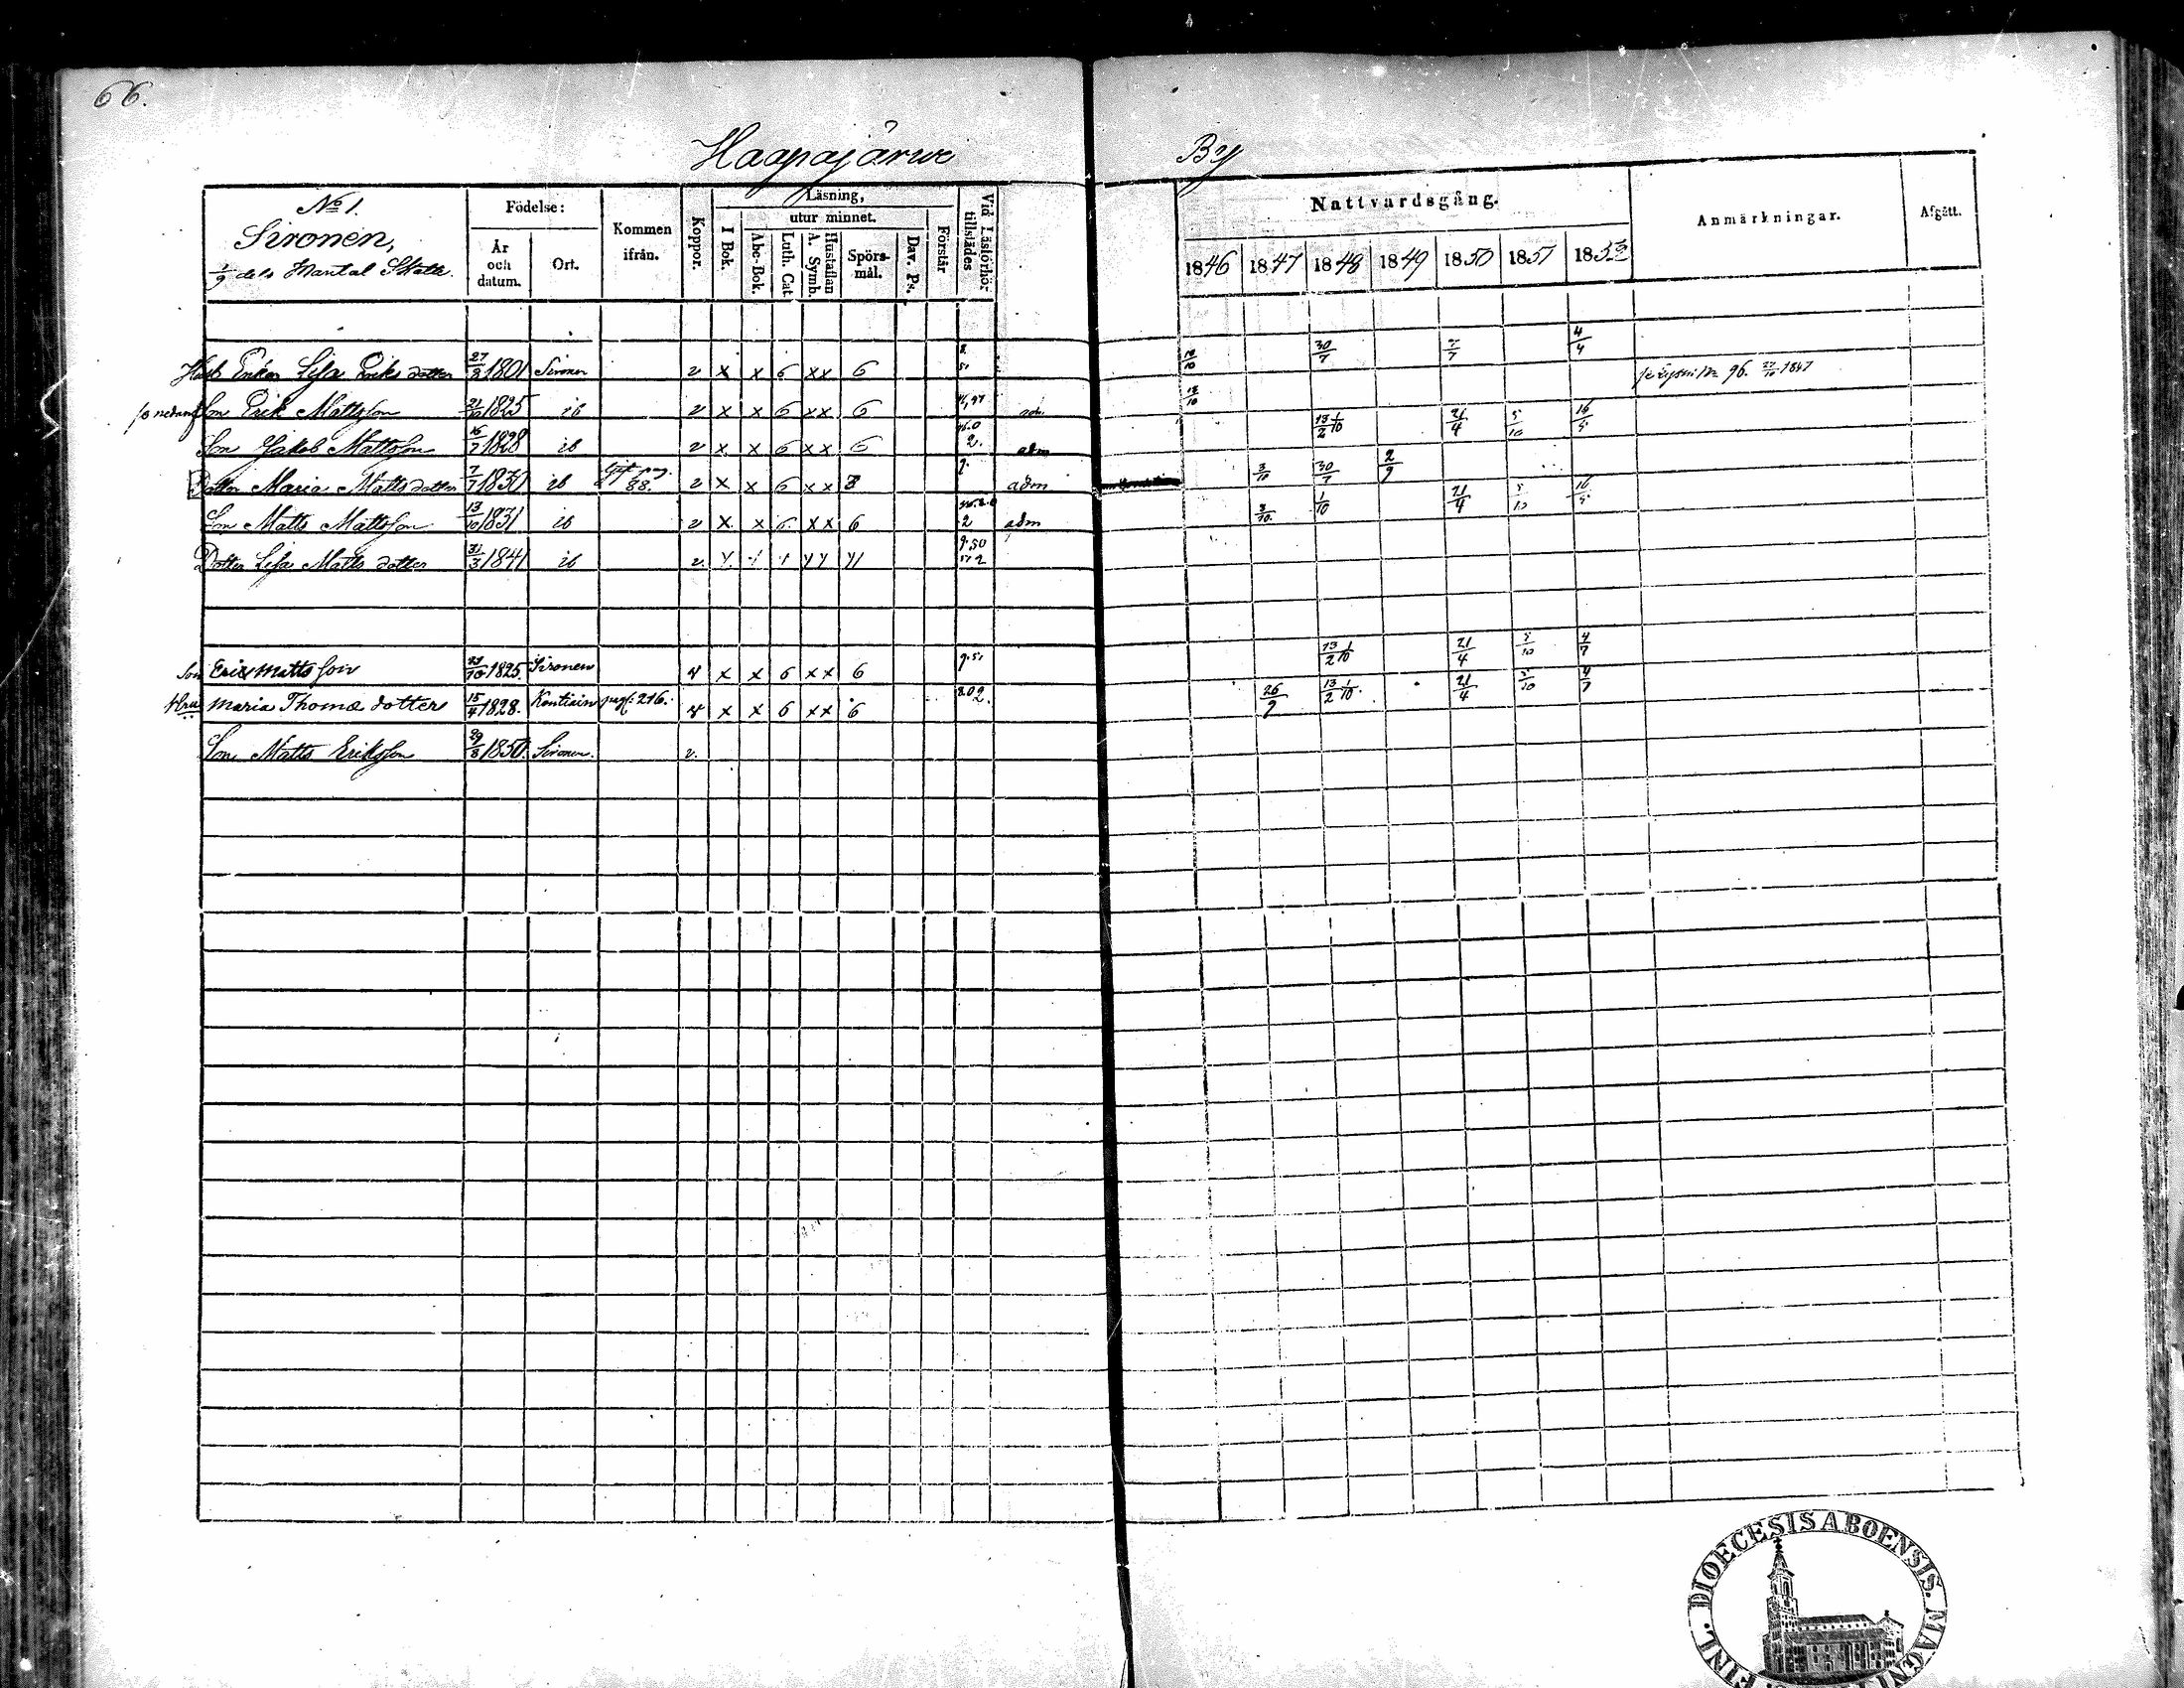 66.
Haapajärwi By
No 1.
Sironen,
1/9 dels Mantal Skatte.
Födelse:
År och datum.
Ort.
Kommen ifrån.
Koppor.
Läsning,
I Bok.
utur minnet.
Abc-Bok.
Luth. Cat.
A. Symb.
Hustaflan
Spörsmål.
Dav. Ps.
Förstår
Vid Läsförhör tillstädes
Nattvardsgång.
1846 1847 1848 1849 1850 1851 1852
Anmärkningar.
Afgått.
Enkan Lisa Eriks dotter 27/2 1801 Sironen v x x 6 xx 6 30/7 7/7 4/4
Son Erik Mattsson 21/10 1825 ib v x x 6 xx 6 96. 1847
Son Jakob Mattsson 16/7 1828 ib v x x 6 xx 6 2. adm 13/2 1/10 21/4 5/10 16/5
Dotter Maria Matts dotter 7/7 1830 ib Gift pag. 88. v x x 6 xx 8 adm 3/10 30/7 2/9
Son Matts Mattsson 13/10 1831 ib v x x 6 xx 6 2 adm 3/10 1/10 21/4 5/10 16/5
Dotter Lisa Matts dotter 31/3 1841 ib v.
Son Erik Matts son 21/10 1825. Sironen v x x 6 xx 6 13/2 1/10 21/4 5/10 4/7
Hru Maria Thomæ dotter 15/4 1828. Kontiain pag: 216. v x x 6 xx 6 26/9 13/2 1/10. 21/4 5/10 4/7
Son Matts Eriksson 29/8 1850. Sironen. v.
DIOECESIS ABOENSIS. MAGNI FINL.